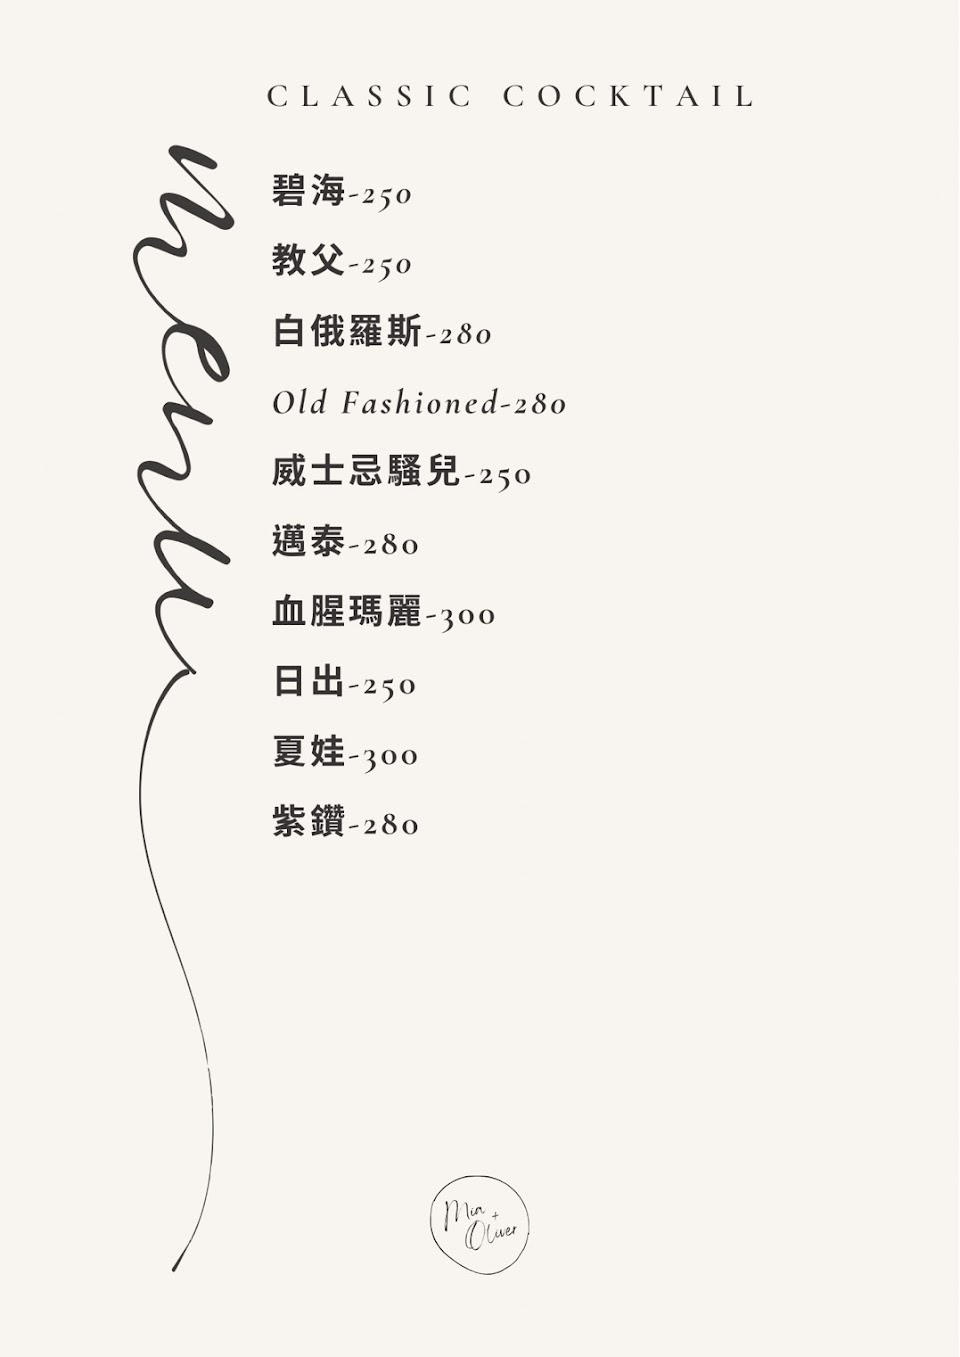 CLASSIC COCKTAIL
menu
碧海-250
教父-250
白俄羅斯-280
Old Fashioned-280
威士忌騷兒-250
邁泰-280
血腥瑪麗-300
日出-250
夏娃-300
紫鑽-280
Mia +
Oliver